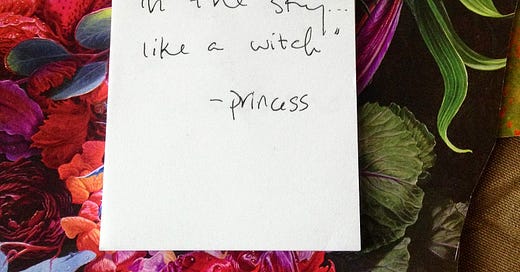 in the sky...
like a witch"
-princess